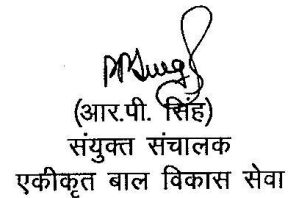 (आर.पी. सिंह)
संयुक्त संचालक
एकीकृत बाल विकास सेवा